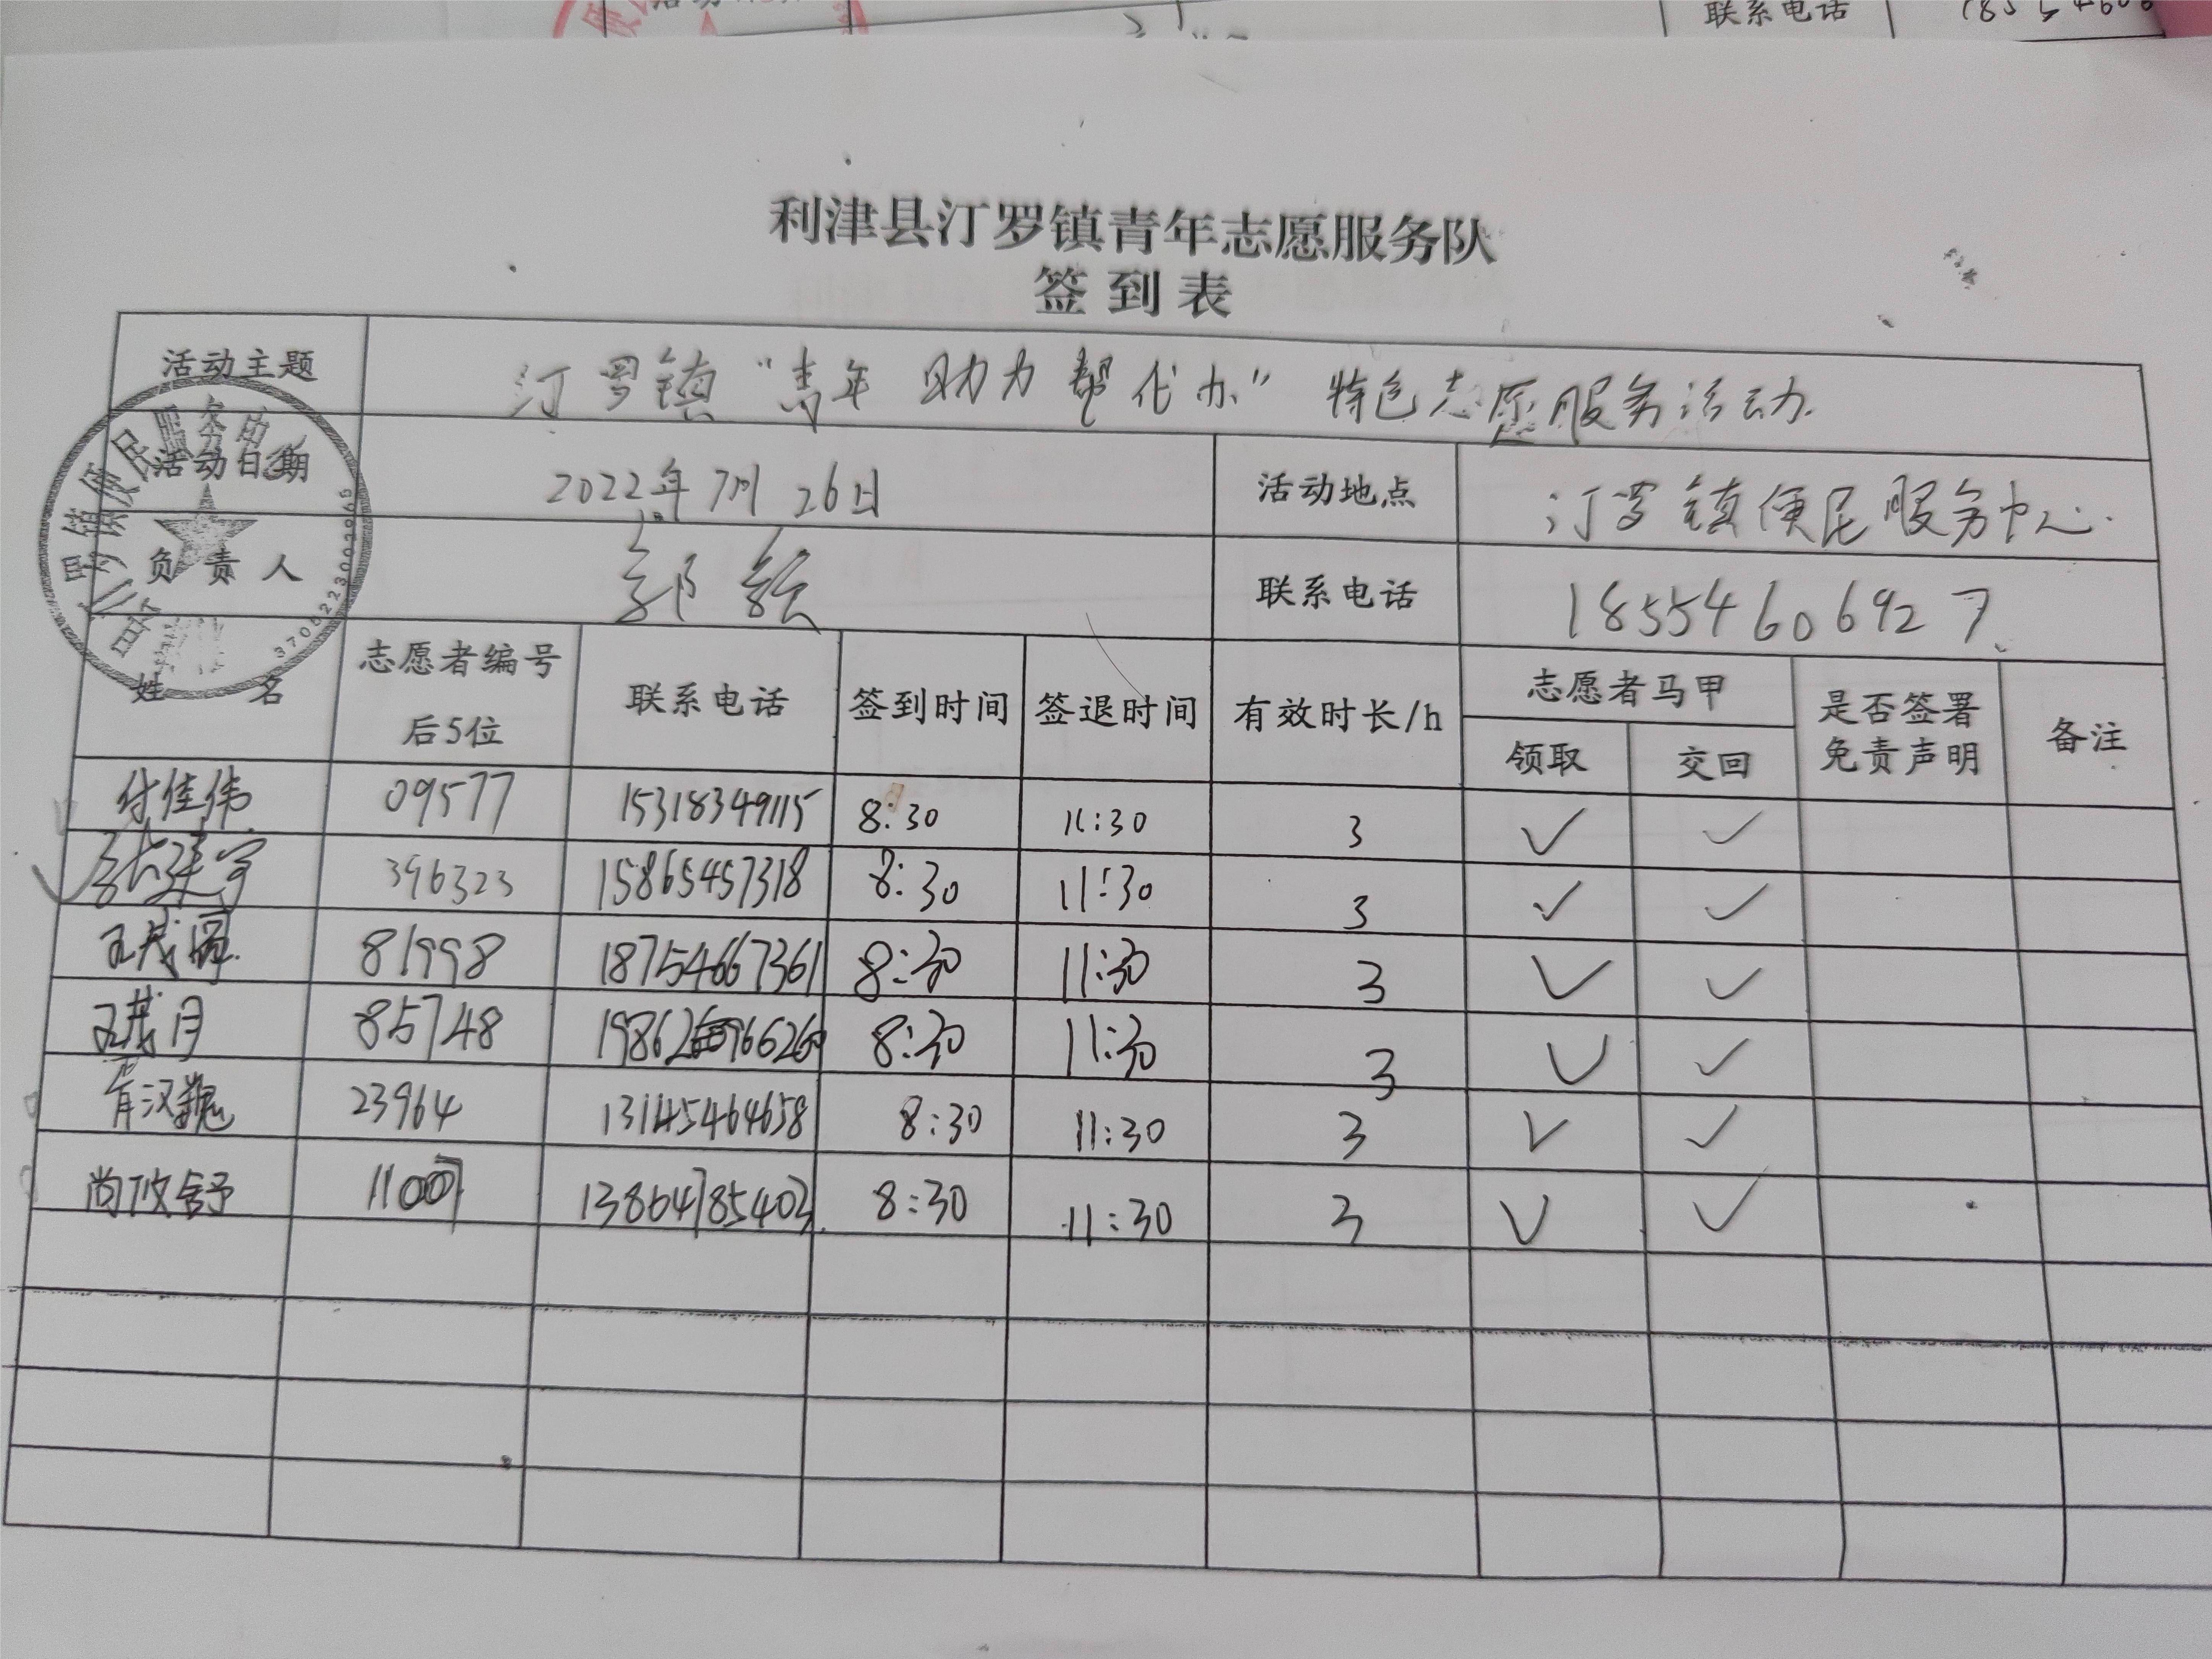 联系电话
利津县汀罗镇青年志愿服务队
签到表
活动主题 汀罗镇“青年助力帮代办”特色志愿服务活动
活动日期 2022年7月26日 活动地点 汀罗镇便民服务中心
负责人 联系电话 18554606927
姓名 志愿者编号后5位 联系电话 签到时间 签退时间 有效时长/h 志愿者马甲 领取 交回 是否签署免责声明 备注
付佳伟 09577 15318349115 8:30 11:30 3 ✓ ✓
396323 15865457318 8:30 11:30 3 ✓ ✓
81998 18754667361 8:30 11:30 3 ✓ ✓
85748 8:30 11:30 3 ✓ ✓
23964 13145464658 8:30 11:30 3 ✓ ✓
尚政舒 13864785403 8:30 11:30 3 ✓ ✓